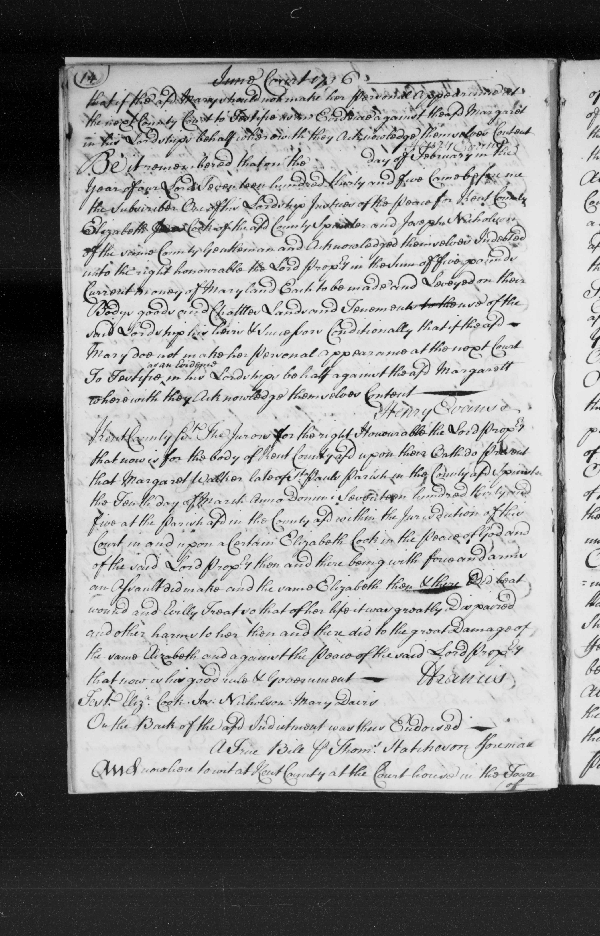 14
June Court 1736
that if the afd Mary should not make her Personal Appearance at
the next County Court to Testifie as an Evidence against the afd Margaret
in his Lordships behalf wherewith they Acknowledge themselves Content
Be it remembered that on the day of February in the
Year of our Lord Seventeen hundred thirty and five Came before me
the Subscriber One of his Lordships Justices of the Peace for Kent County
Elizabeth Cook of the afd County Spinster and Joseph Nicholson
of the same County Gentleman and Acknowledged themselves Indebted
unto the right honourable the Lord Propry in the Sum of five pounds
Current money of Maryland Each to be made and Leveyed on their
Bodys goods and Chattles Lands and Tenements to the use of the
said Lordship his heirs & Successors Conditionally that if the afd
Mary doe not make her Personal appearance at the next Court
as an Evidence
To Testifie in his Lordships behalf against the afd Margarett
wherewith they Acknowledge themselves Content
Henry Evans
Kent County Sct. The Jurors for the right Honourable the Lord Propry
that now is for the body of Kent County afd upon their Oath do Present
that Margaret late of St. Pauls Parish in the County afd Spinster
the Tenth day of March Anno Domini Seventeen hundred thirty and
five at the Parish afd in the County afd within the Jurisdiction of this
Court in and upon a Certain Elizabeth Cook in the peace of God and
of the said Lord Propry then and there being with force and arms
an Assault did make and the same Elizabeth then & there did beat
wound and Evilly Treat so that of her life it was greatly Dispaired
and other harms to her then and there did to the great Damage of
the same Elizabeth and against the Peace of the said Lord Propry
that now is his good rule & Government
Test. Eliz. Cook Jos. Nicholson Mary Davis
On the Back of the afd Indictment was thus Endorsed
A True Bill Thom. Hatcheson foreman
to wit at Kent County at the Court house in the Town
of